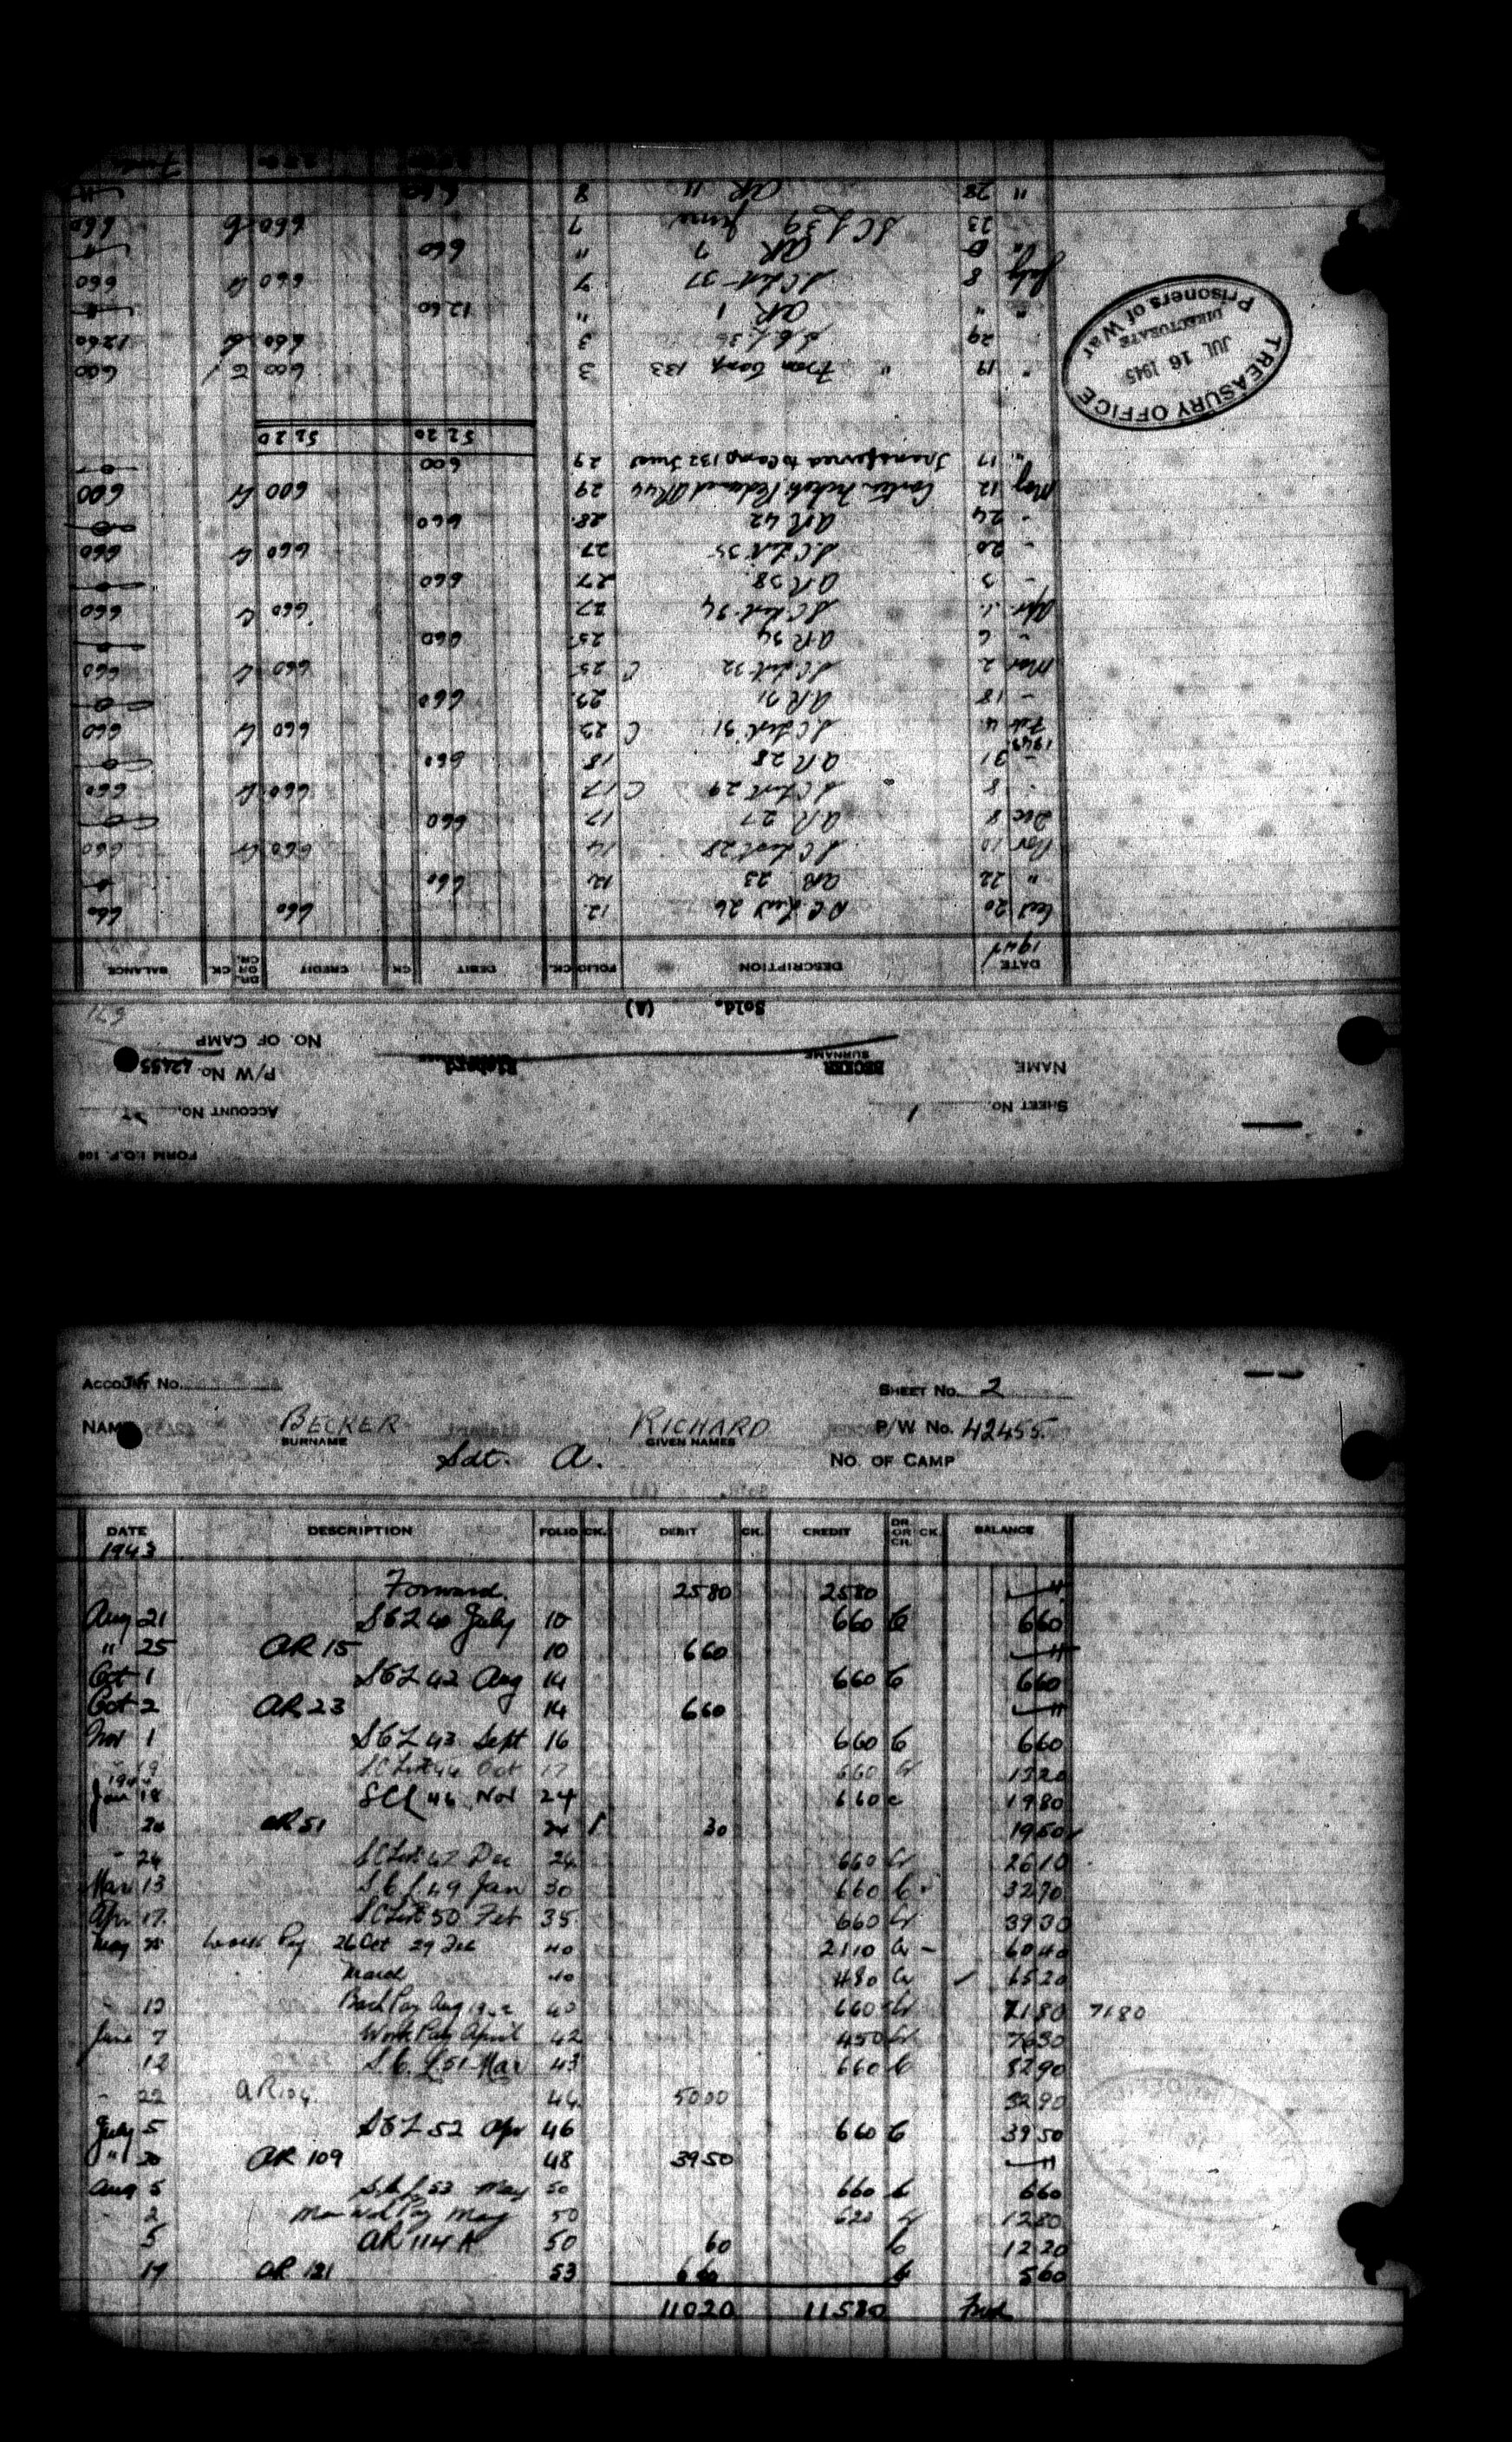 FORM I.O.P. 100
SHEET No. 1 ACCOUNT No.
NAME BECKER Richard P/W No. 42455
SURNAME
NO. OF CAMP
Sold. (A)
DATE DESCRIPTION FOLIO CK. DEBIT CK. CREDIT DR. OR CR. CK. BALANCE
20 26 12 660 660
" 22 AR 23 12 660
Nov 10 S C List 28 14 660 Cr 660
Dec 8 AR 27 17 660
- 8 S C List 29 C 17 660 Cr 660
- 31 AR 28 18 660
1943
Feb 4 S C List 31 C 23 660 Cr 660
- 18 AR 31 23 660
Mar 2 S C List 32 C 25 660 Cr 660
- 6 AR 34 25 660
Apr 1 S C List 34 27 660 Cr 660
- 3 AR 38 27 660
- 20 S C List 35 27 660 Cr 660
- 24 AR 42 28 660
May 12 29 600 Cr 600
" 17 Transferred to Camp 132 29 600
5220 5220
" 19 133 3 600 600
29 S.C.L. 36 3 660 1260
" " AR 1 " 1260
July 8 S.C. List 37 7 660 660
AR 7 " 660
23 S C L 39 June 7 660 660
" 28 AR 11 8 660
TREASURY OFFICE
JUL 16 1945
DIRECTORATE
Prisoners of War
ACCOUNT No. SHEET No. 2
NAME BECKER RICHARD P/W No. 42455
SURNAME GIVEN NAMES
Sdt. A. NO. OF CAMP
DATE DESCRIPTION FOLIO CK. DEBIT CK. CREDIT DR. OR CR. CK. BALANCE
1943
Forward 2580 2580
Aug 21 S C L 40 July 10 660 C 660
" 25 AR 15 10 660
Oct 1 S C L 42 Aug 14 660 C 660
Oct 2 AR 23 14 660
Nov 1 S C L 43 Sept 16 660 C 660
- 19 S C List 44 Oct 17 660 Cr 1320
1944
Jan 18 SCL 46 Nov 24 660 c 1980
24 AR 51 24 30 1950
- 24 S C List 47 Dec 24 660 Cr 2610
Mar 13 S C L 49 Jan 30 660 C 3270
Apr 17 S C List 50 Feb 35 660 Cr 3930
May Work Pay 26 Oct 29 Feb 40 2110 Cr 6040
March 40 480 Cr 6520
- 12 Back Pay Aug 40 660 Cr 7180 7180
June 7 Work Pay April 42 450 Cr 7630
12 S.C.L 51 Mar 43 660 C 8290
- 22 AR 104 44 5000 3290
July 5 S C L 52 Apr 46 660 C 3950
" 20 AR 109 48 3950
Aug 5 S.C.L 53 May 50 660 C 660
- 2 Pay May 50 620 Cr 1280
5 AR 114 A 50 60 C 1220
17 AR 121 53 660 C 560
11020 11580 Fwd